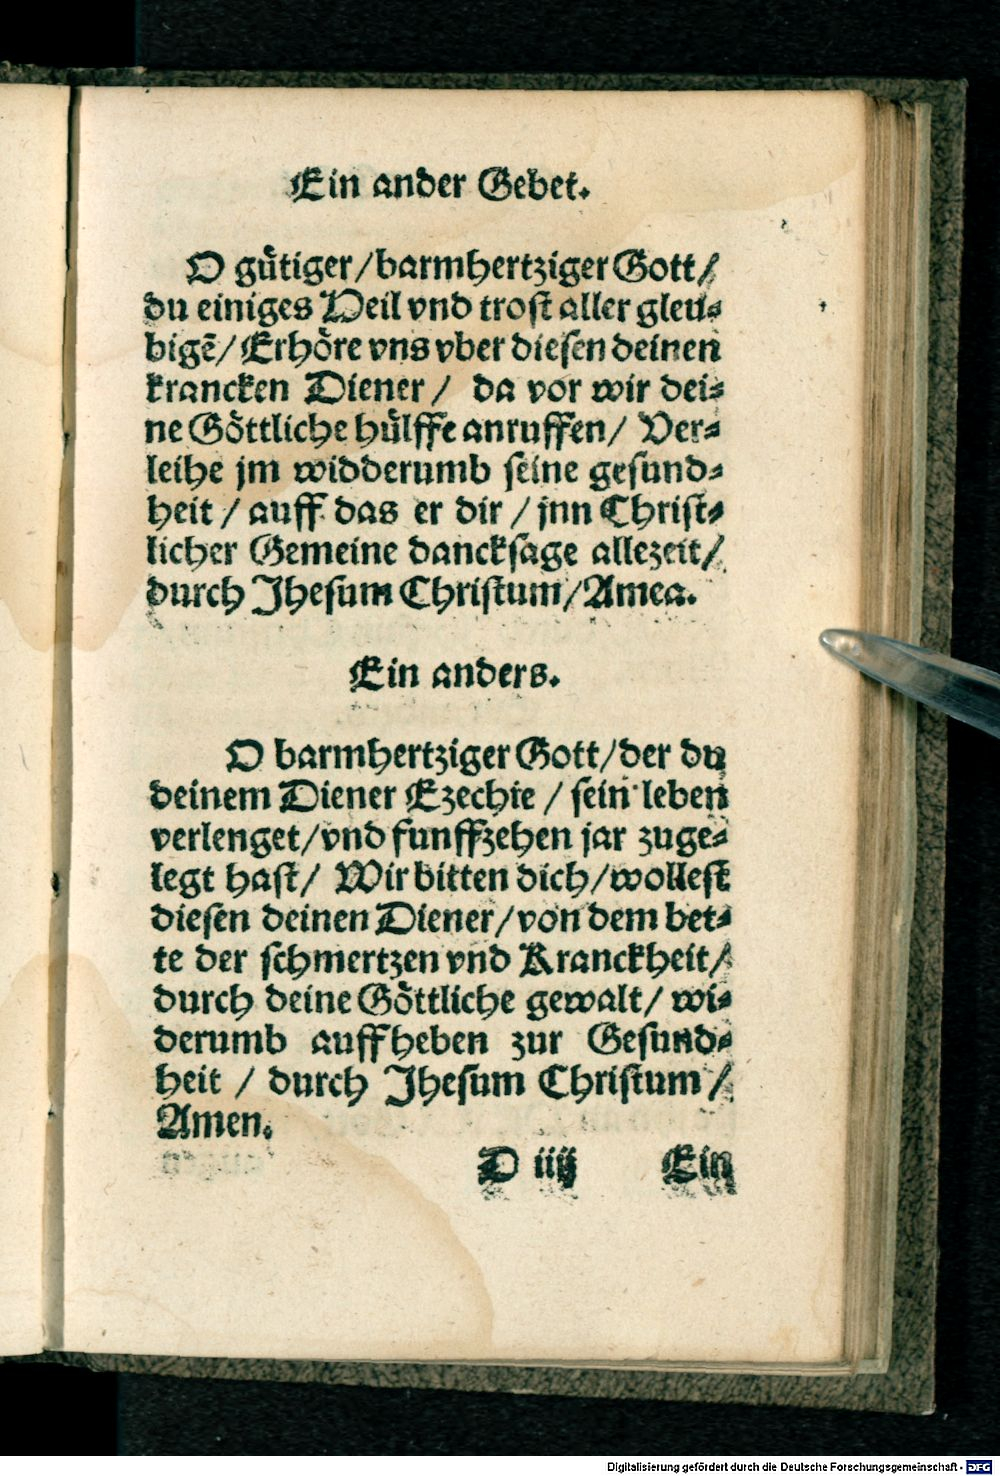 Ein ander Gebet.
O gütiger/barmhertziger Gott/
du einiges Heil vnd trost aller gleu⸗
bigẽ/ Erhöre vns vber diesen deinen
krancken Diener/ da vor wir dei⸗
ne Göttliche hülffe anruffen/ Ver⸗
leihe jm widderumb seine gesund⸗
heit / auff das er dir / jnn Christ⸗
licher Gemeine dancksage allezeit/
durch Jhesum Christum/Amen.
Ein anders.
O barmhertziger Gott/der du
deinem Diener Ezechie / sein leben
verlenget/vnd funffzehen jar zuge⸗
legt hast/ Wir bitten dich/wollest
diesen deinen Diener/von dem bet⸗
te der schmertzen vnd Kranckheit/
durch deine Göttliche gewalt/ wi⸗
derumb auffheben zur Gesund⸗
heit / durch Jhesum Christum /
Amen.
D iiij Ein
Digitalisierung gefördert durch die Deutsche Forschungsgemeinschaft - DFG